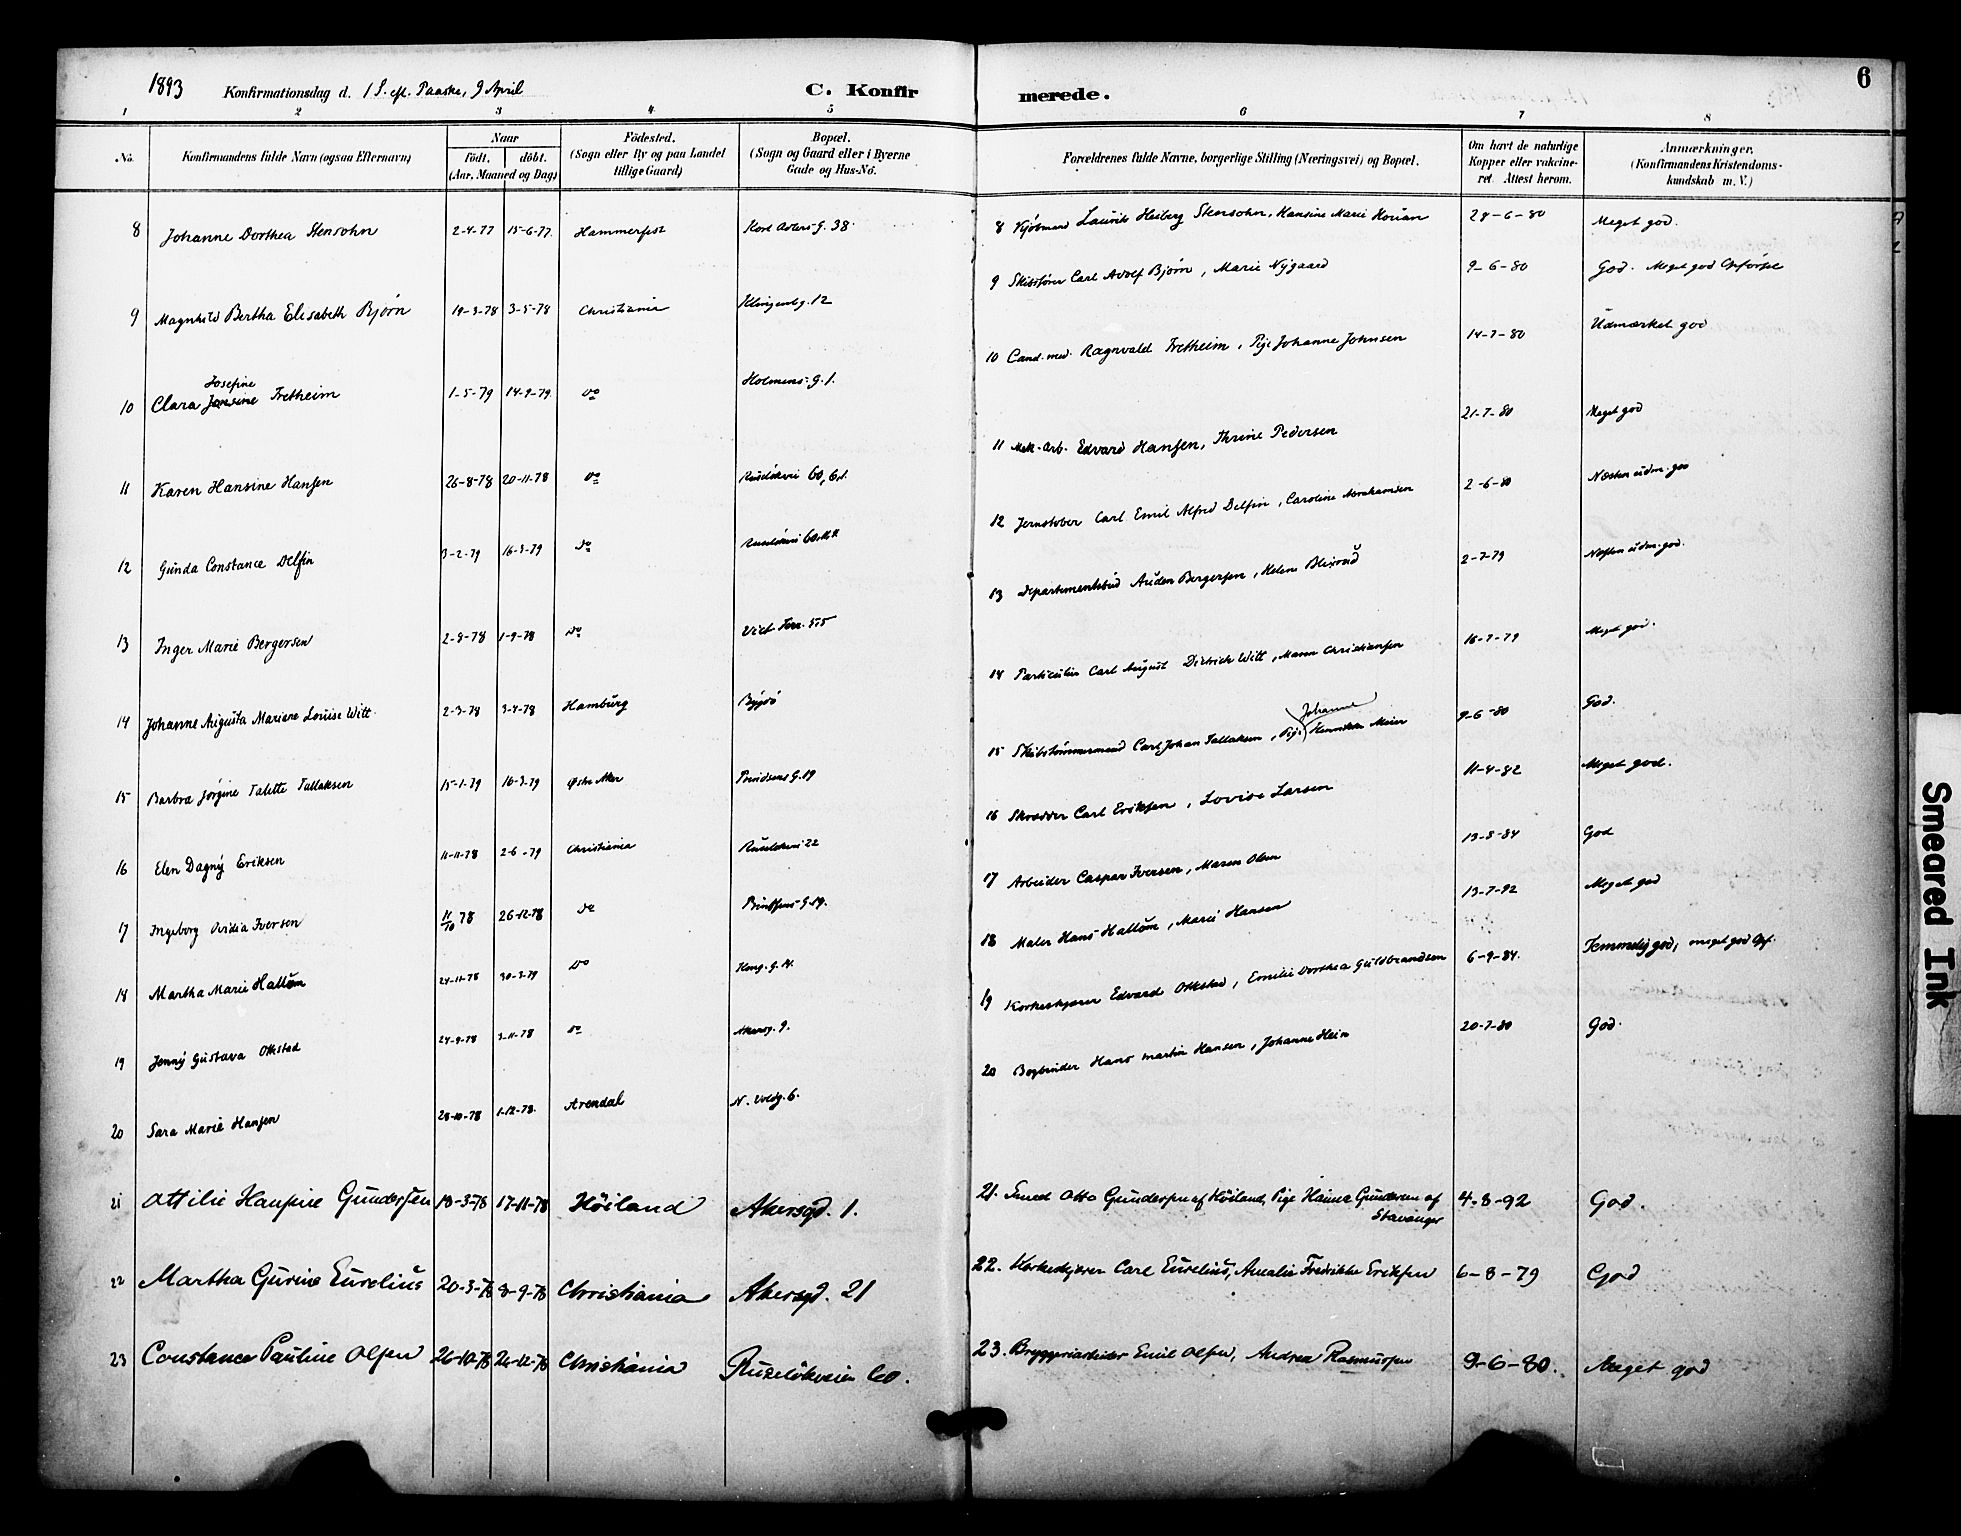 1893 Konfirmationsdag d. 1 S. eft. Paaske, 9 April C. Konfirmerede. 6
1 2 3 4 5 6 7 8
No. Konfirmandens fulde Navn (ogsaa Efternavn) Naar födt. döbt. (Aar, Maaned og Dag) Födested. (Sogn eller By og paa Landet tillige Gaard) Bopæl. (Sogn og Gaard eller i Byerne Gade og Hus-No. Forældrenes fulde Navne, borgerlige Stilling (Næringsvei) og Bopæl. Om havt de naturlige Kopper eller vakcineret. Attest herom. Anmærkninger. (Konfirmandens Kristendomskundskab m. V.)
8 Johanne Dorthea Stensohn 2-4-77 15-6-77 Hammerfest 38 8 Kjøbmand Laurits Hesberg Stensohn, Hansine Marie 28-6-80 Meget god.
9 Magnhild Bertha Elisabeth Bjørn 19-3-78 3-5-78 Christiania Klingenbg. 12 9 Skibsfører Carl Adolf Bjørn, Marie Nygaard 9-6-80 God. Meget god Opførsel
10 Clara Josefine Tretheim 1-5-79 14-9-79 do Holmens-G. 1. 10 Cand. med. Ragnvald Tretheim, Pige Johanne Johnsen 14-7-80 Udmærket god
11 Karen Hansine Hansen 26-8-78 20-11-78 do Ruseløkvei 60, 11 Mek. Arb. Edvard Hansen, Thrine Pedersen 21-7-80 Meget god
12 Gunda Constance Delfin 3-2-79 16-3-79 do Ruseløkvei 12 Jernstøber Carl Emil Alfred Delfin, Caroline Abrahamsen 2-6-80 Næsten udm. god
13 Inger Marie Bergersen 2-8-78 1-9-78 do Vict. Terr. 13 Departementsbud Auden Bergersen, Helene Blixrud 2-7-79 Næsten udm. god.
14 Johanne Augusta Mariane Louise Witt 2-3-78 3-4-78 Hamburg Bygdø 14 Particulier Carl August Dietrich Witt, Maren Christiansen 16-7-79 Meget god.
15 Barbra Jørgine Talette Tallaksen 15-1-79 16-3-79 Østre Aker G. 19 15 Skibstømmermand Carl Johan Tallaksen, Pige Johanne Henrikke Meier 9-6-80 God.
16 Elen Dagny Eriksen 11-11-78 2-6-79 Christiania Ruseløkvei 22 16 Skrædder Carl Eriksen, Lovise Larsen 11-4-82 Meget god.
17 Ingeborg Ovidia Iversen 11/10 78 26-12-78 do G. 19. 17 Arbeider Caspar Iversen, Maren Olsen 13-8-84 God
18 Martha Marie Hallum 24-11-78 30-3-79 do Kong. G. 14. 18 Maler Hans Hallum, Marie Hansen 13-7-92 Meget god
19 Jenny Gustava Ottestad 24-9-78 3-11-78 do Akersg. 9. 19 Korkeskjærer Edvard Ottestad, Emilie Dorthea Guldbrandsen 6-9-84. Temmelig god, meget god Opf.
20 Sara Marie Hansen 28-10-78 1-12-78. Arendal N. Voldg. 6. 20 Bogbinder Hans Martin Hansen, Johanne Hein 20-7-80 God.
21 Ottilie Hansine Gundersen 18-3-78 17-11-78 Höiland Akersgd. 1. 21. Smed Otto Gundersen af Höiland, Pige Hanne Gundersen af Stavanger 4-8-92 God.
22 Martha Gurine Eurelius 20-3-78 8-9-78 Christiania Akersgd. 21 22. Korkeskjærer Carl Eurelius, Amalie Fredrikke Eriksen 6-8-79 God
23 Constance Pauline Olsen 26-10-78 26-12-78 Christiania Ruseløkveien 60. 23. Bryggeriarbeider Emil Olsen, Andrea Rasmussen 9-6-80. Meget god
Smeared Ink